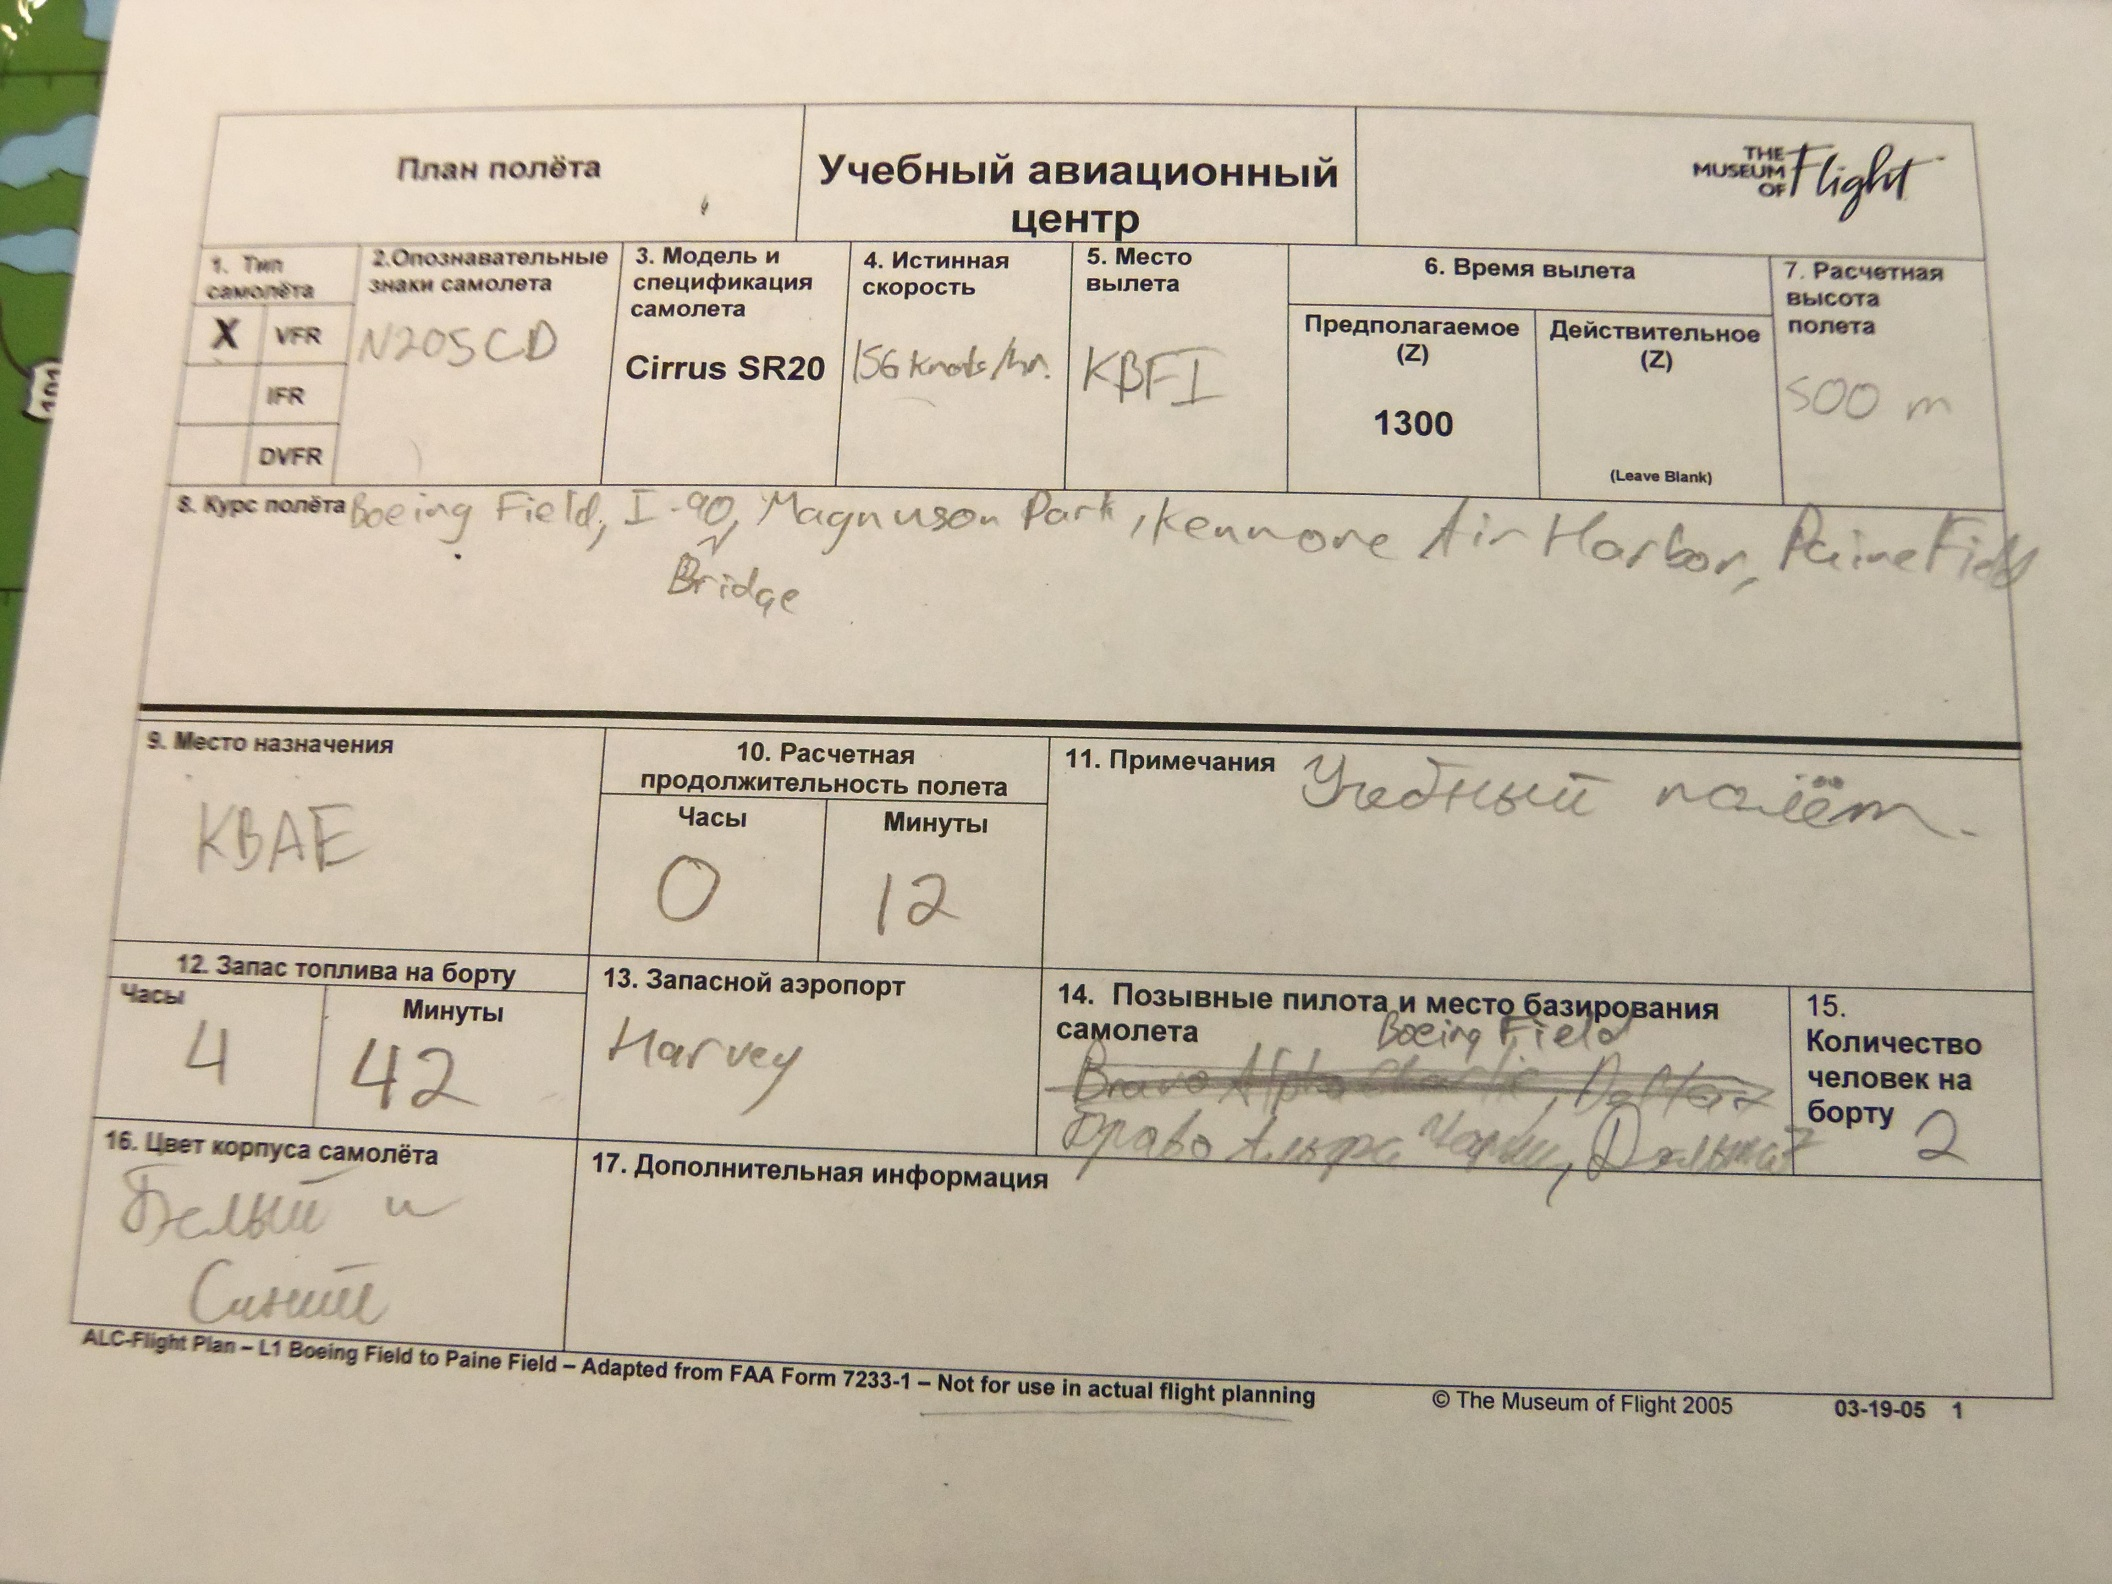 План полёта
Учебный авиационный
центр
THE
MUSEUM
OF Flight
1. Тип
самолёта
X VFR
IFR
DVFR
2.Опознавательные
знаки самолета
N205CD
3. Модель и
спецификация
самолета
Cirrus SR20
4. Истинная
скорость
156 knots/hr.
5. Место
вылета
KBFI
6. Время вылета
Предполагаемое
(Z)
1300
Действительное
(Z)
(Leave Blank)
7. Расчетная
высота
полета
500 m
8. Курс полёта Boeing Field, I-90, Magnuson Park, Kenmore Air Harbor, Paine Field
Bridge
9. Место назначения
KBAE
10. Расчетная
продолжительность полета
Часы
0
Минуты
12
11. Примечания Учебный полёт.
12. Запас топлива на борту
Часы
4
Минуты
42
13. Запасной аэропорт
Harvey
14. Позывные пилота и место базирования
самолета Boeing Field
Bravo Alpha Charlie, Delta 7
Браво Альфа Чарли, Дельта 7
15.
Количество
человек на
борту 2
16. Цвет корпуса самолёта
Белый и
Синий
17. Дополнительная информация
ALC-Flight Plan – L1 Boeing Field to Paine Field – Adapted from FAA Form 7233-1 – Not for use in actual flight planning
© The Museum of Flight 2005
03-19-05 1
101